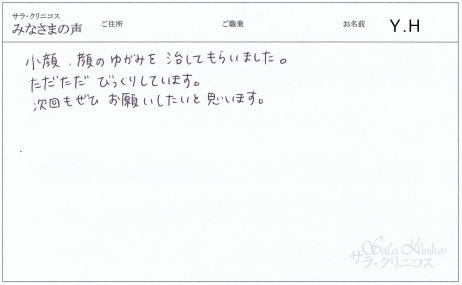 サラ・クリニコス
みなさまの声 ご住所 ご職業 お名前 Y.H
小顔、顔のゆがみを 治してもらいました。
ただただ びっくりしています。
次回もぜひ お願いしたいと思います。
Sala Klinikos
サラ・クリニコス